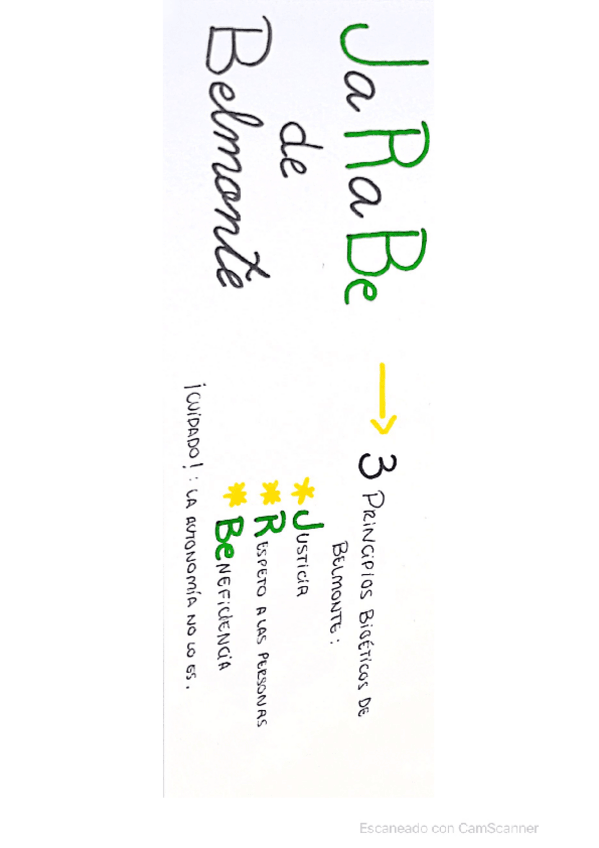 JaRaBe
de
Belmonte
→ 3 PRINCIPIOS BIOÉTICOS DE
BELMONTE:
* JUSTICIA
* RESPETO A LAS PERSONAS
* BENEFICIENCIA
¡CUIDADO!: LA AUTONOMÍA NO LO ES.
Escaneado con CamScanner